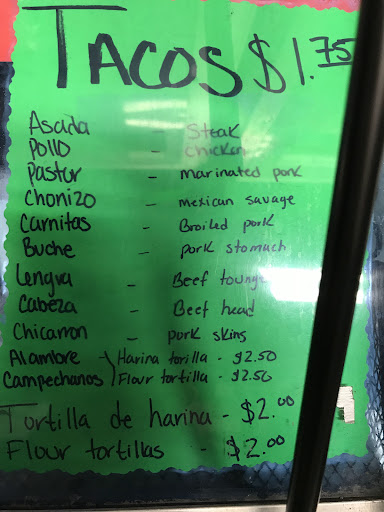 TACOS $1.75
Asada - Steak
Pollo - chicken
Pastor - marinated pork
Chorizo - mexican savage
Carnitas - Broiled pork
Buche - pork stomach
Lengua - Beef tounge
Cabeza - Beef head
Chicarron - pork skins
Alambre Harina torilla - $2.50
Campechanos Flour tortilla - $2.50
Tortilla de harina - $2.00
Flour tortillas - $2.00